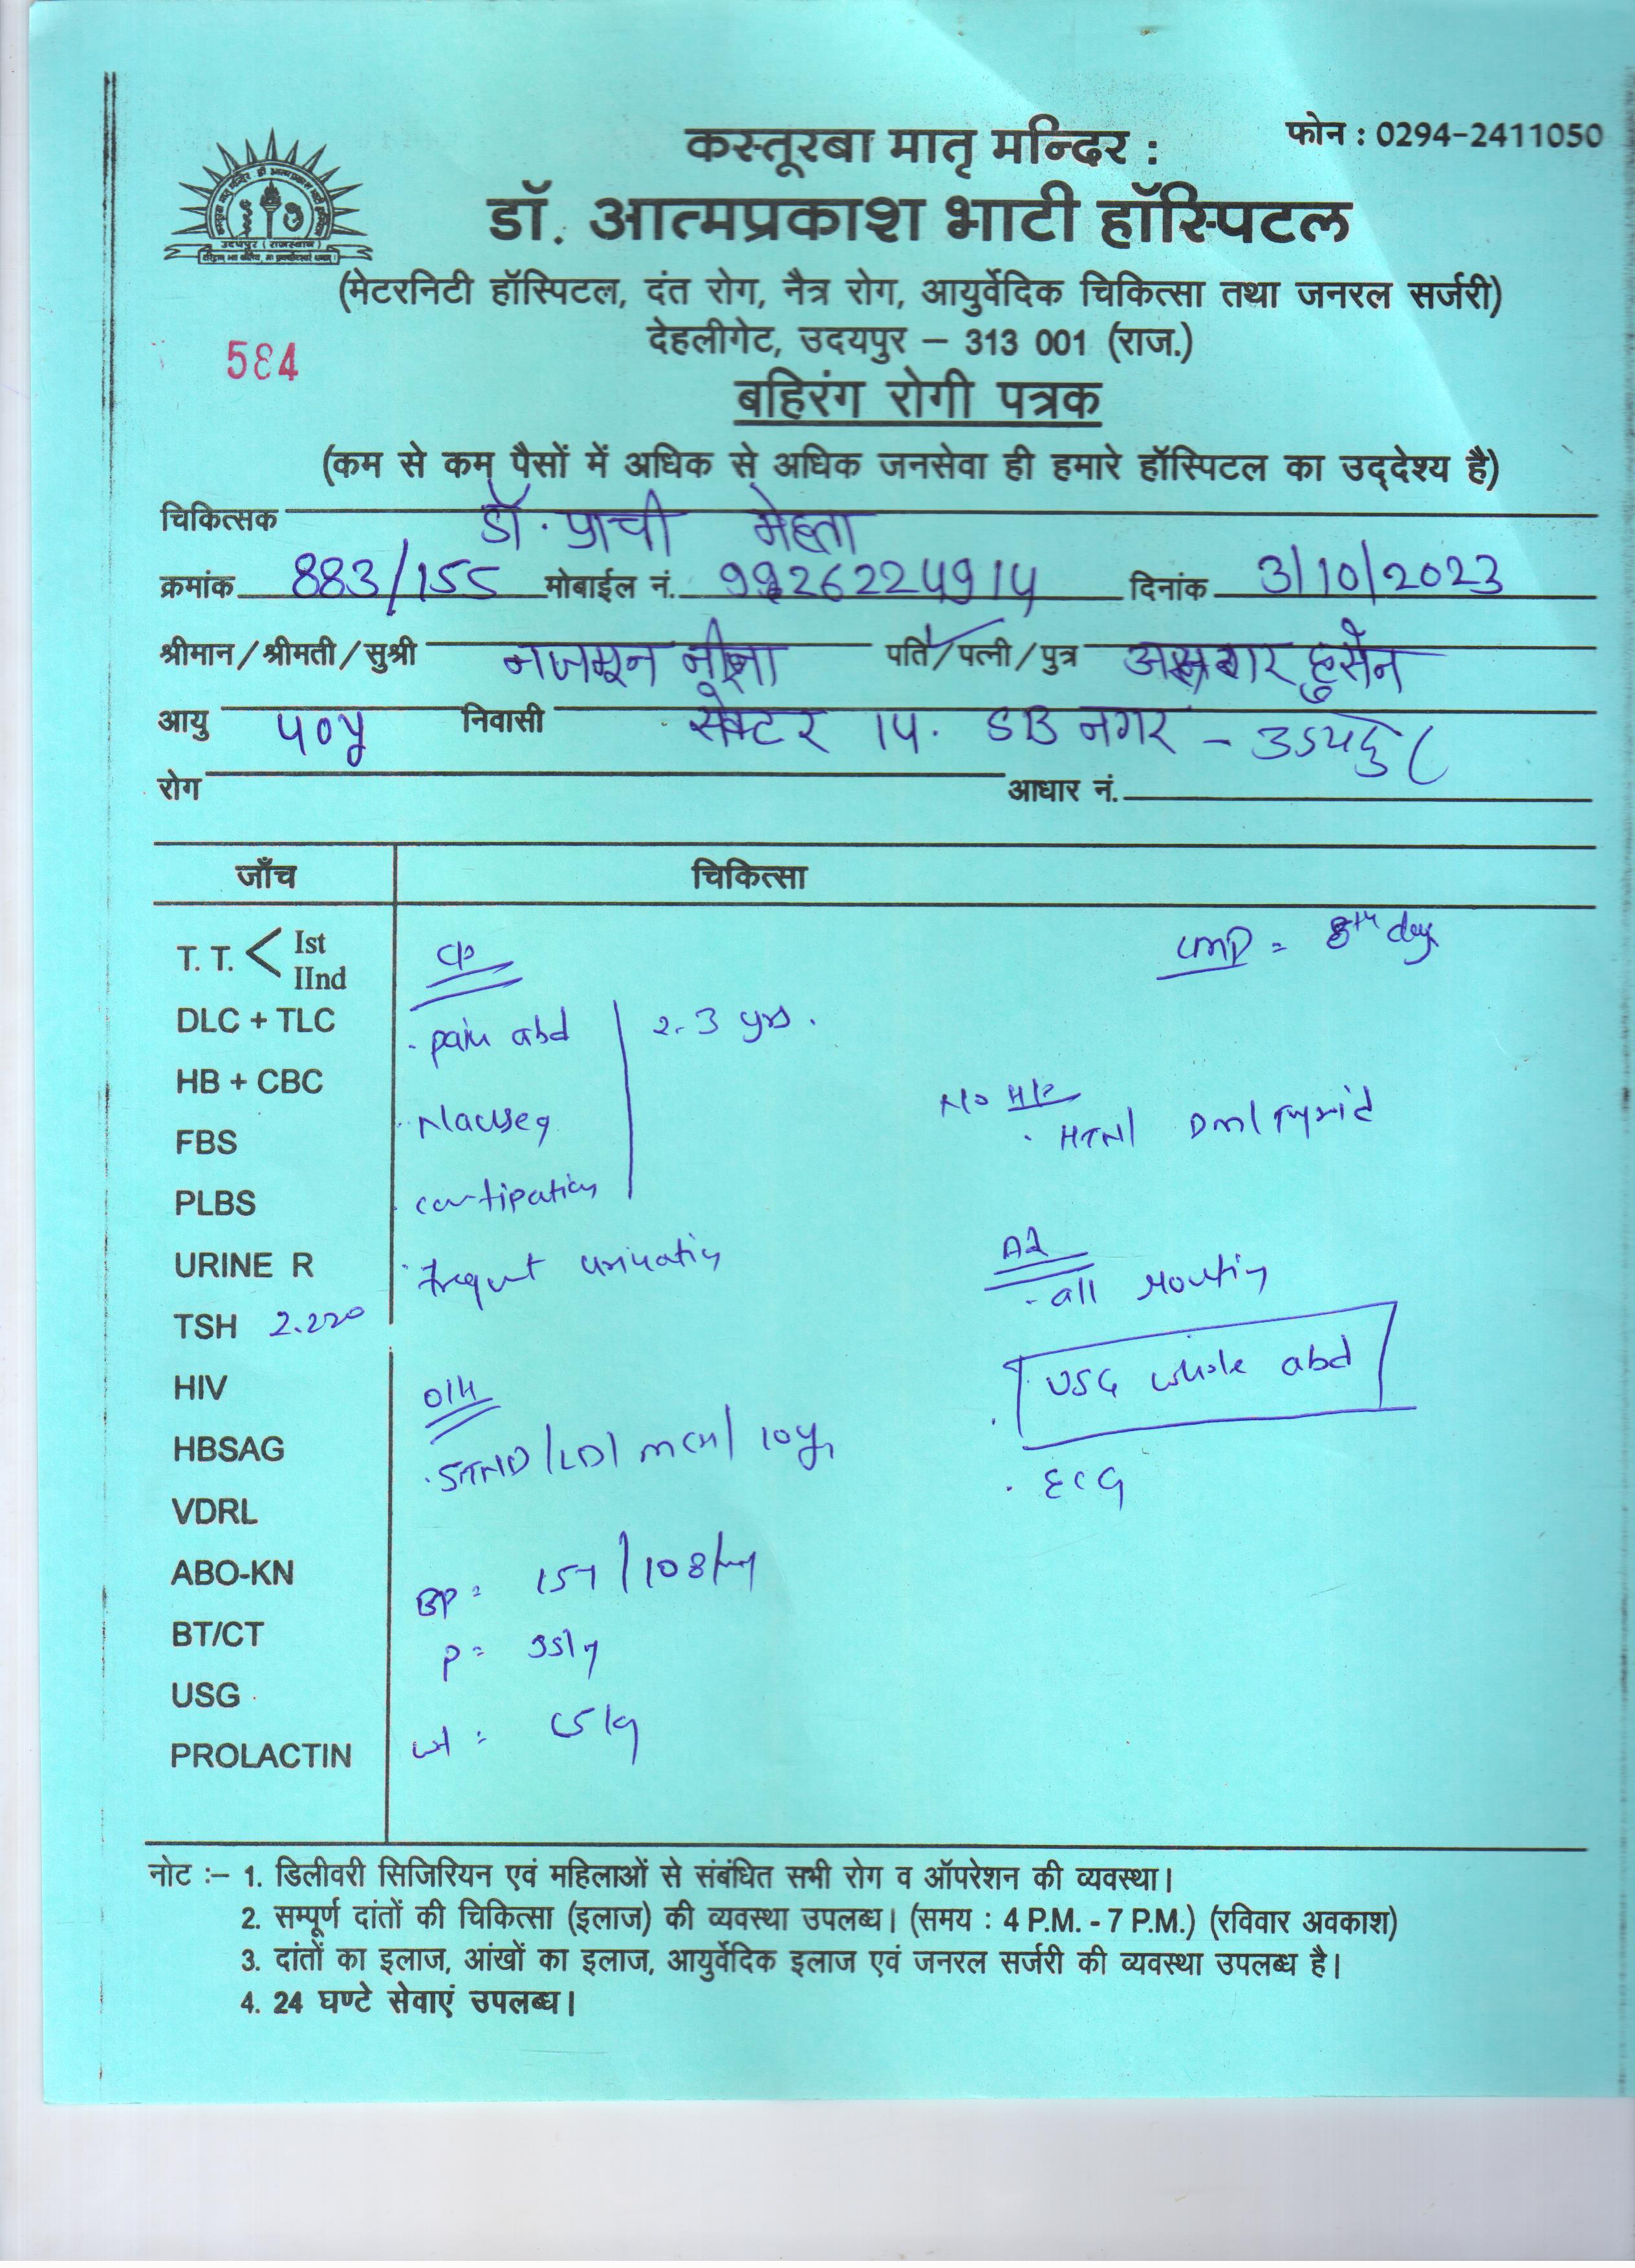 कस्तूरबा मातृ मन्दिर :
फोन : 0294-2411050
डॉ. आत्मप्रकाश भाटी हॉस्पिटल
उदयपुर (राजस्थान)
(मेटरनिटी हॉस्पिटल, दंत रोग, नैत्र रोग, आयुर्वेदिक चिकित्सा तथा जनरल सर्जरी)
देहलीगेट, उदयपुर – 313 001 (राज.)
584
बहिरंग रोगी पत्रक
(कम से कम पैसों में अधिक से अधिक जनसेवा ही हमारे हॉस्पिटल का उद्देश्य है)
चिकित्सक डॉ. प्राची मेहता
क्रमांक 883/155 मोबाईल नं. दिनांक 3/10/2023
श्रीमान/श्रीमती/सुश्री नजमून पति/पत्नी/पुत्र हुसेन
आयु 40y निवासी सेक्टर 14. SB नगर - उदयपुर
रोग आधार नं.
जाँच चिकित्सा
T. T. < Ist
IInd
LMP = 8th day
DLC + TLC
. pain abd 2-3 yrs.
HB + CBC
No H/o
. HTN/ DM/ Thyroid
FBS
. Nausea
PLBS
. constipation
URINE R
. frequent urination
Ad
- all routin
TSH 2.220
HIV
. USG whole abd
O/H
HBSAG
. ECG
VDRL
ABO-KN
BP = 157/108
BT/CT
P =
USG
wt =
PROLACTIN
नोट :– 1. डिलीवरी सिजिरियन एवं महिलाओं से संबंधित सभी रोग व ऑपरेशन की व्यवस्था।
2. सम्पूर्ण दांतों की चिकित्सा (इलाज) की व्यवस्था उपलब्ध। (समय : 4 P.M. - 7 P.M.) (रविवार अवकाश)
3. दांतों का इलाज, आंखों का इलाज, आयुर्वेदिक इलाज एवं जनरल सर्जरी की व्यवस्था उपलब्ध है।
4. 24 घण्टे सेवाएं उपलब्ध।